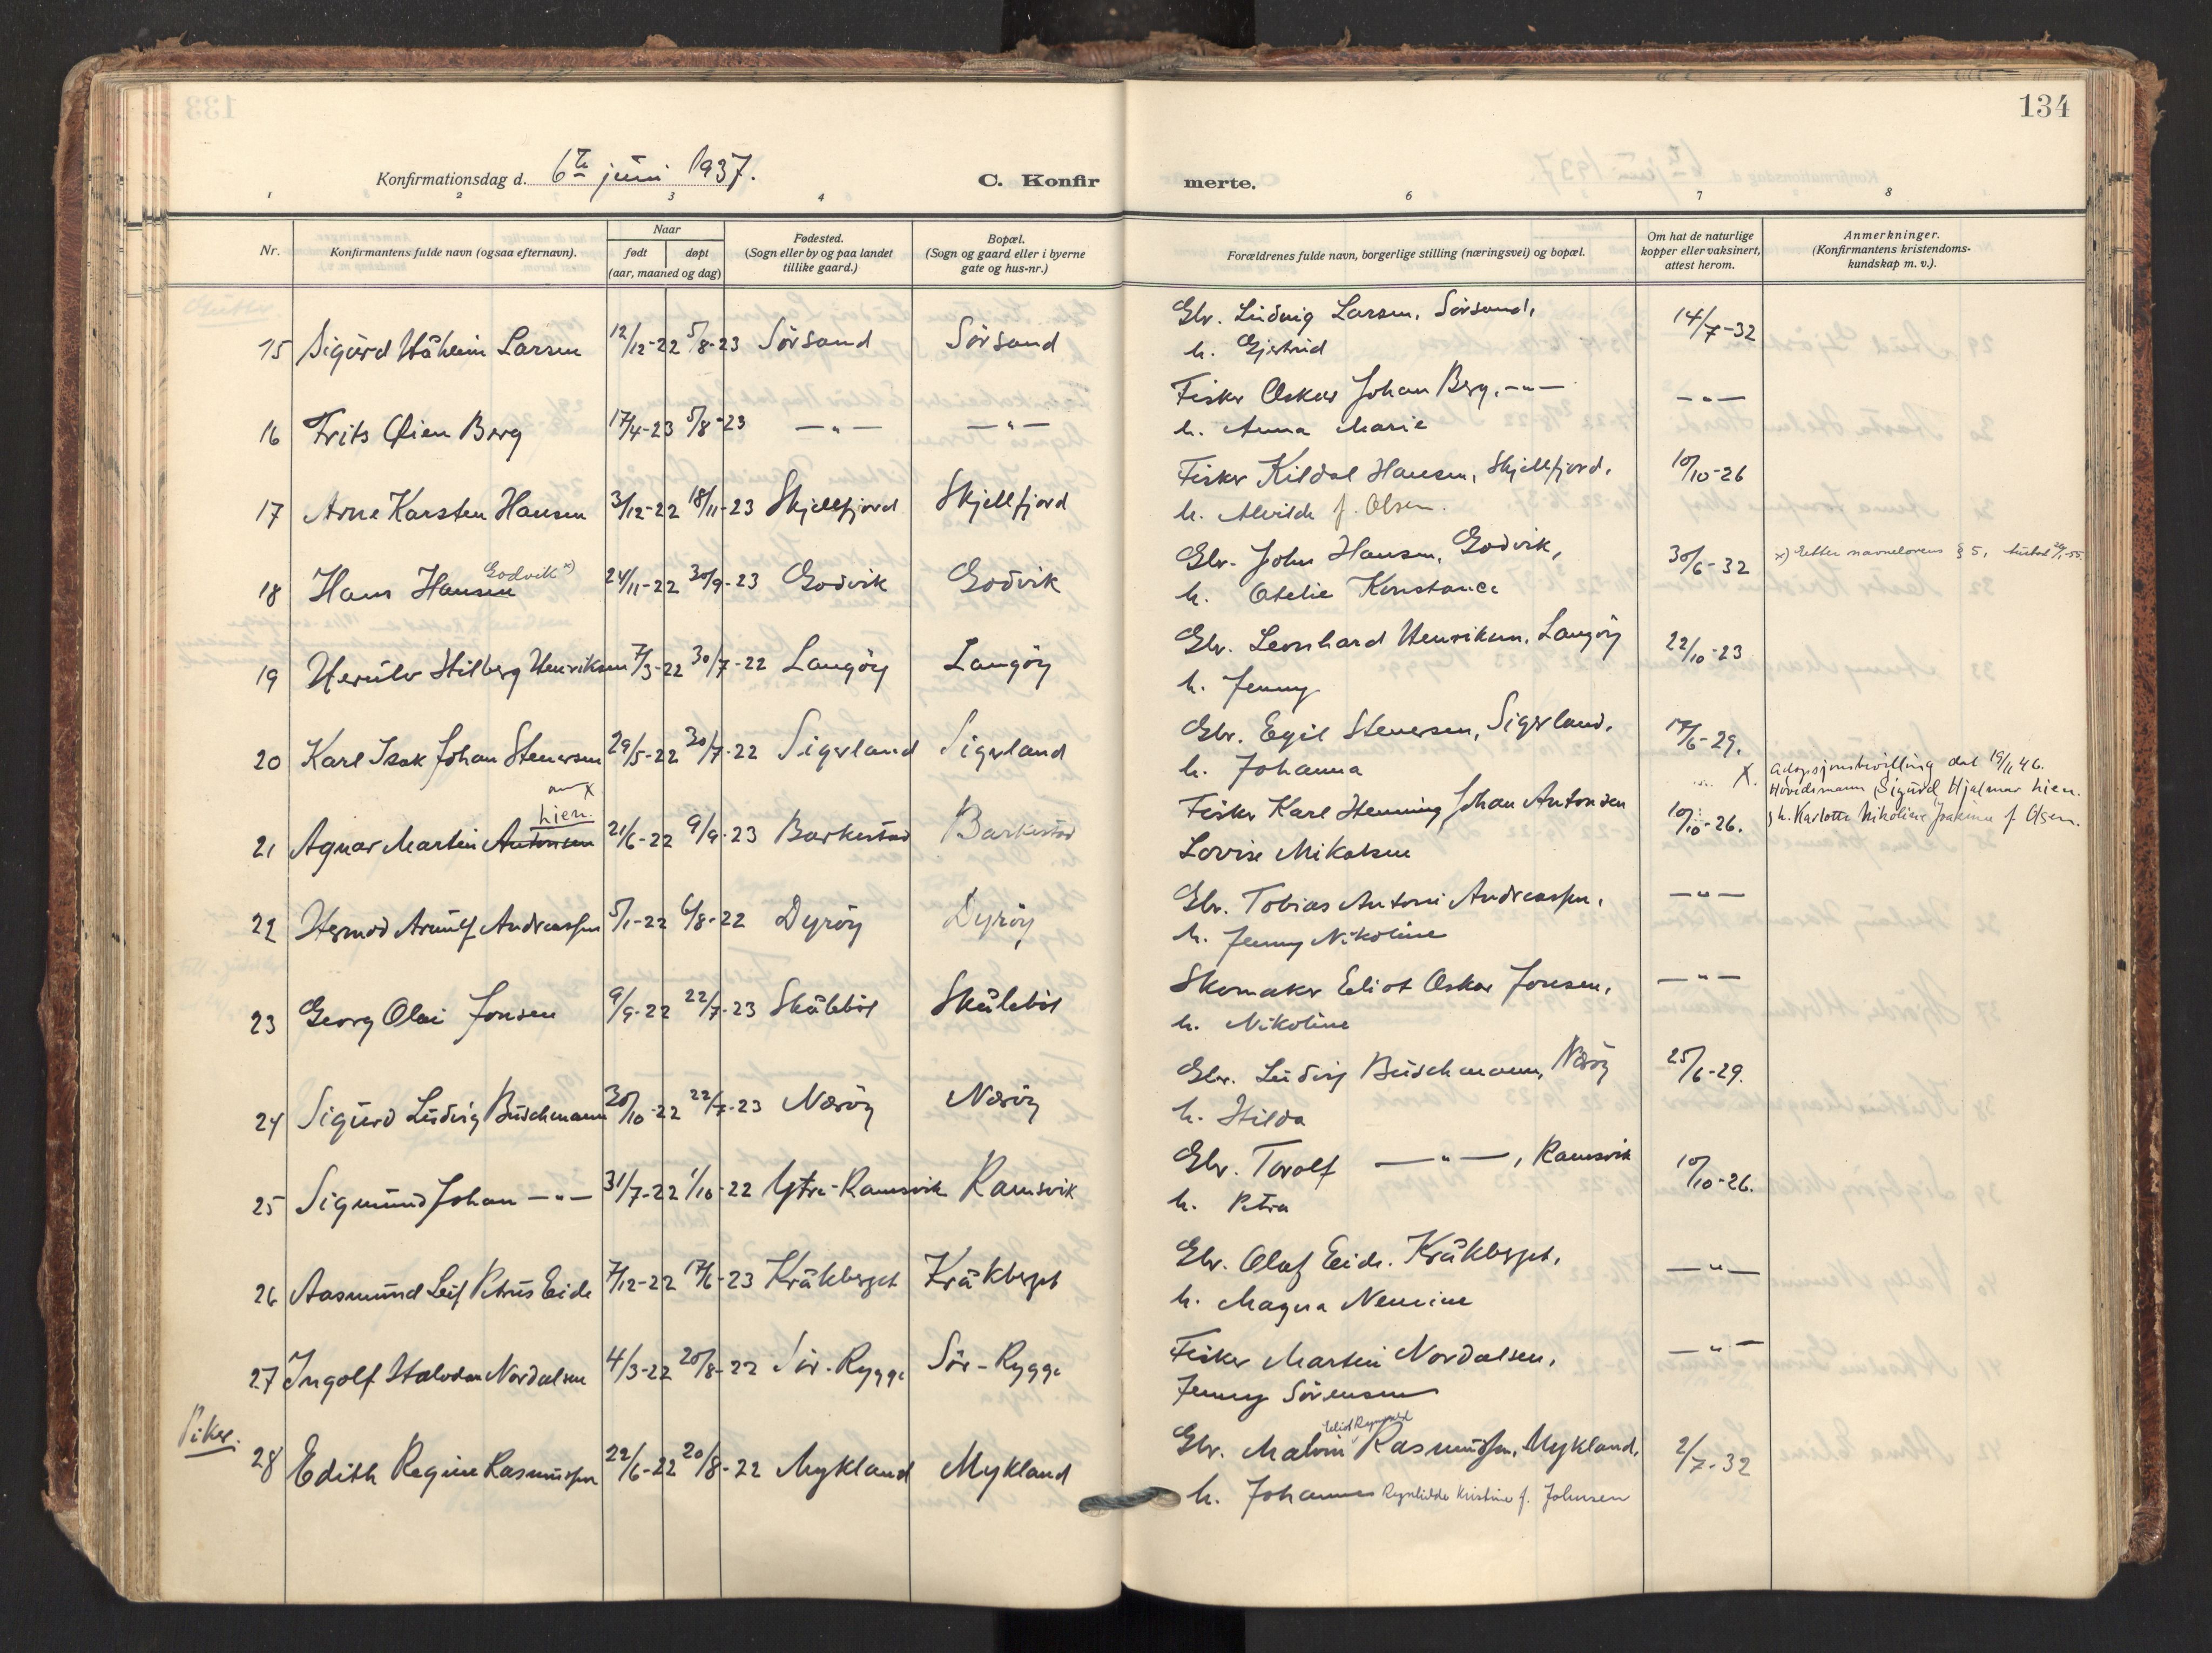 134
Konfirmationsdag d. 6te juni 1937.
C. Konfirmerte.
1 2 3 4 6 7 8
Nr.
Konfirmantens fulde navn (ogsaa efternavn).
Naar
født
døpt
(aar, maaned og dag)
Fødested.
(Sogn eller by og paa landet
tillike gaard.)
Bopæl.
(Sogn og gaard eller i byerne
gate og hus-nr.)
Forældrenes fulde navn, borgerlige stilling (næringsvei) og bopæl.
Om hat de naturlige
kopper eller vaksinert,
attest herom.
Anmerkninger.
(Konfirmantens kristendoms-
kundskap m. v.).
Gutter
Gbr. Ludvig Larsen, Sörsand,
15 Sigurd Larsen 12/12-22 5/8-23 Sörsand Sörsand 14/7-32
h. Gjertrud
Fisker Oskar Johan Berg, —"—
16 Frits Öien Berg 17/4-23 5/8-23 —"— —"— —"—
h. Anna Marie
Fisker Kildal Hansen, Skjellfjord,
17 Arne Karsten Hansen 3/12-22 18/11-23 Skjellfjord Skjellfjord 10/10-26
h. Alvilde f. Olsen.
Gbr. John Hansen, Godvik,
Godvik x)
18 Hans Hansen 24/11-22 30/9-23 Godvik Godvik 30/6-32 x) Etter navnelovens § 5,
h. Otelie Konstance
Gbr. Leonhard Henriksen, Langöy
19 Herulv Hilberg Henriksen 7/3-22 30/7-22 Langöy Langöy 22/10-23
h. Jenny
Gbr. Egil Stenersen, Sigerland,
20 Karl Isak Johan Stenersen 29/5-22 30/7-22 Sigerland Sigerland 17/6-29.
h. Johanna
x. Adopsjonsbevilling dat 19/11 46.
Hovedsmann Sigurd Hjalmar Lien.
x
Lien
Fisker Karl Henning Johan Antonsen
21 Agnar Martin Antonsen 21/6-22 9/9-23 Barkestad Barkestad 10/10-26. h. Karlotte Nikoline Joakime f Olsen.
Lovise Mikalsen
Gbr. Tobias Antoni Andreassen,
22 Hermod Arnulf Andreassen 5/1-22 6/8-22 Dyröy Dyröy —"—
h. Jenny Nikoline
Skomaker Eliot Oskar Jonsen,
23 Georg Olai Jonsen 9/9-22 22/7-23 Skålebör Skålebör —"—
h. Nikoline
Gbr. Ludvig Buschmann, Naröy
24 Sigurd Ludvig Buschmann 30/10-22 22/7-23 Naröy Naröy 25/6-29.
h. Hilda
Gbr. Torolf —"—, Ramsvik
25 Sigmund Johan —"— 31/7-22 1/10-22 Ytre-Ramsvik Ramsvik 10/10-26.
h. Petra
Gbr. Olaf Eide. Kråkberget,
26 Aasmund Leif Petrus Eide 7/12-22 17/6-23 Kråkberget Kråkberget —"—
h. Magna Nennine
Fisker Martin Nordalsen,
27 Ingolf Halvdan Nordalsen 4/3-22 20/8-22 Sör-Rygge Sör-Rygge —"—
Jenny Sörensen
Piker.
Gbr. Malvin Rasmussen, Mykland,
28 Edith Regine Rasmussen 22/6-22 20/8-22 Mykland Mykland 2/7-32
h. Johanna Ragnhilda Kristine f. Johnsen